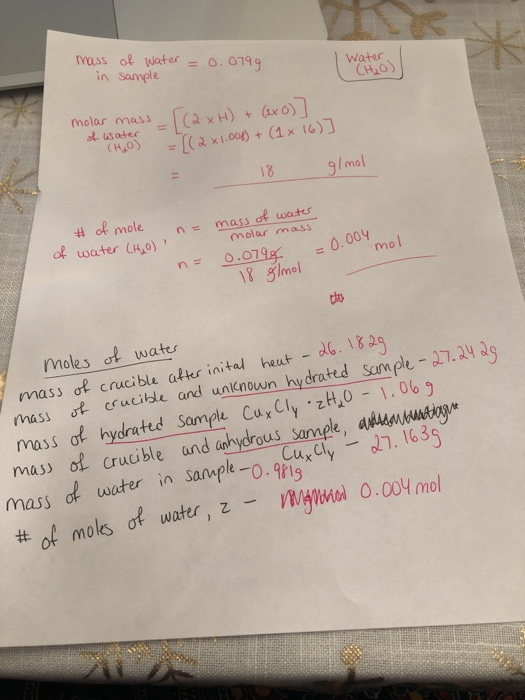 mass of water = 0.079g
in sample
Water
(H₂O)
molar mass = [(2 x H) + (1x O)]
of water
(H₂O) = [(2 x 1.008) + (1 x 16)]
= 18 g/mol
# of mole
of water (H₂O), n = mass of water
molar mass
n = 0.079g
18 g/mol
= 0.004 mol
Moles of water
mass of crucible after inital heat - 26.182g
mass of crucible and unknown hydrated sample - 27.242g
mass of hydrated sample CuxCly · zH₂O - 1.06g
mass of crucible and anhydrous sample, CuxCly - 27.163g
mass of water in sample - 0.981g
# of moles of water, z - 0.004 mol